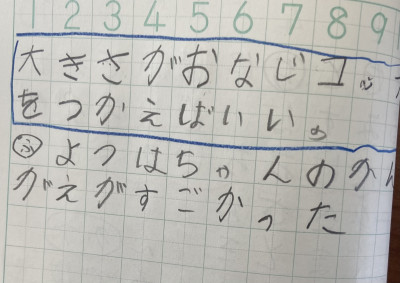 1 2 3 4 5 6 7 8 9
大きさがおなじコ
をつかえばいい。
よつはちゃんのかん
がえがすごかった